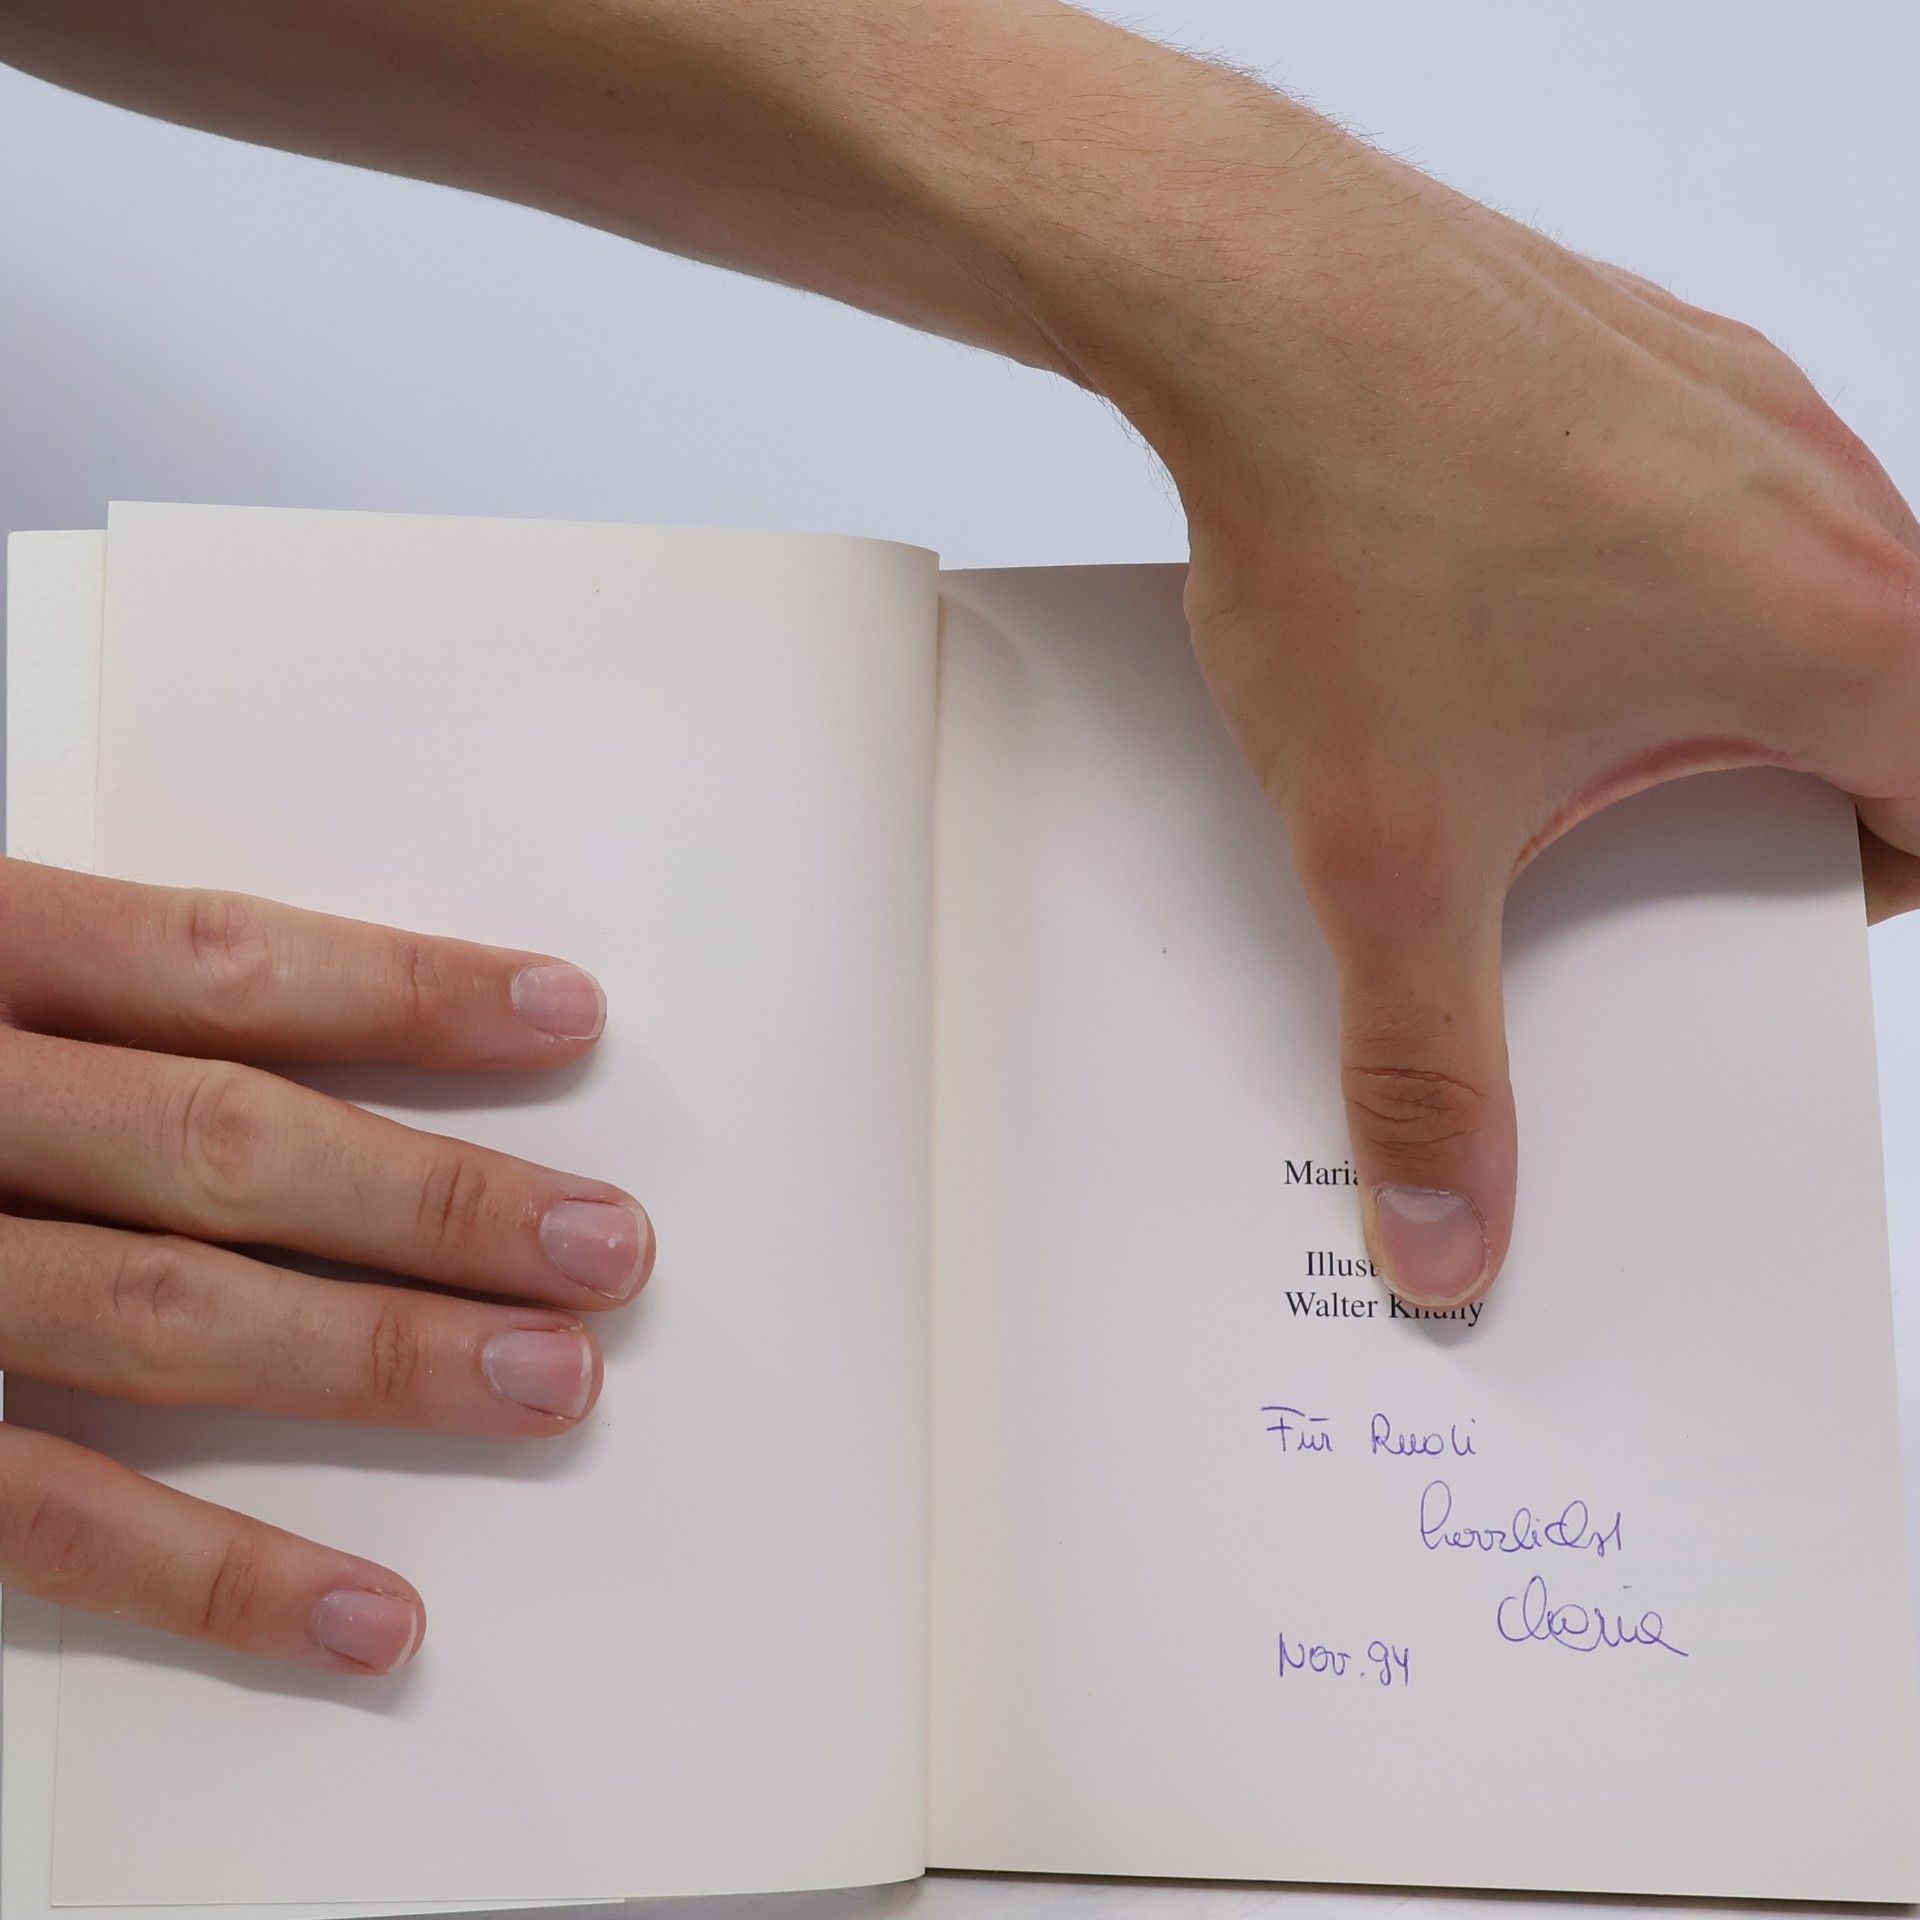 Maria
Illust
Walter
Für Rudi
herzlichst
Maria
Nov. 94